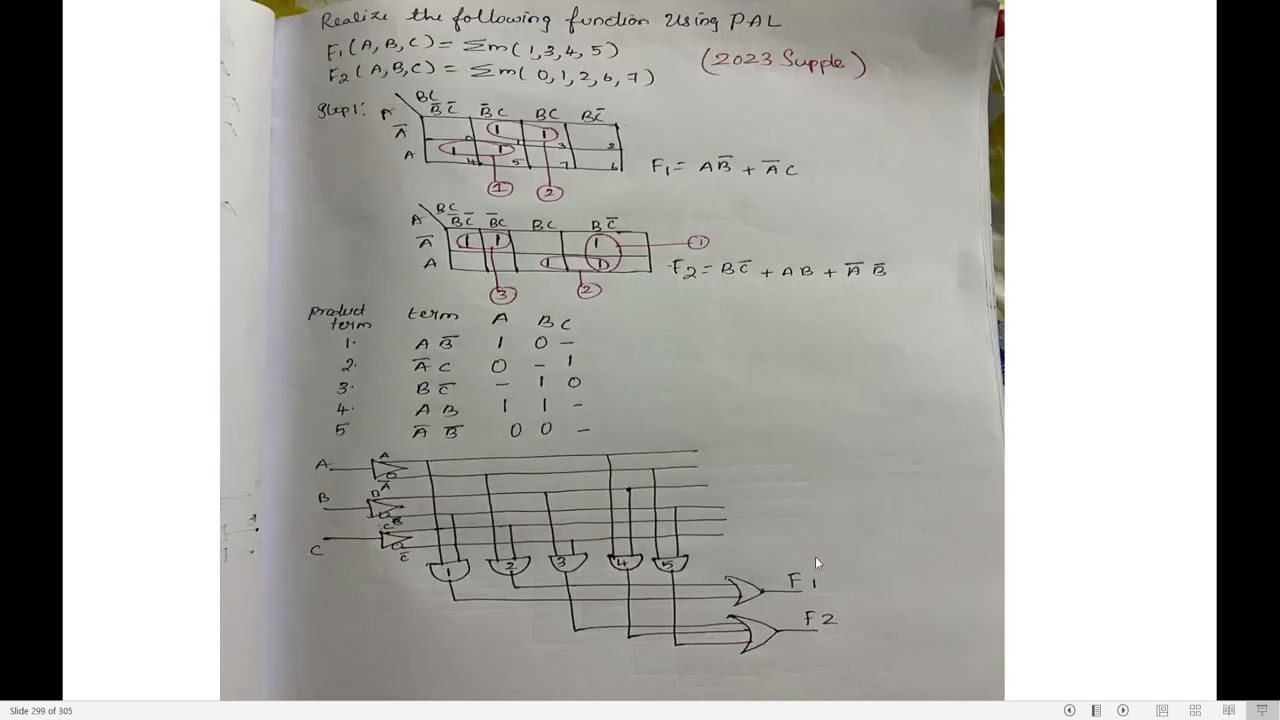 Realize the following function Using PAL
F1(A, B, C) = Σm( 1,3,4, 5)
F2(A, B, C) = Σm( 0,1, 2, 6, 7)
(2023 Supple)
Step1:
BC
A B̅ C̅ B̅ C BC BC̅
A̅ 0 1 1 1 3 2
A 1 4 1 5 7 6
F1 = AB̅ + A̅ C
1 2
BC
A B̅ C̅ B̅C BC BC̅
A̅ 1 1 1 1
A 1 1
F2 = BC̅ + AB + A̅ B̅
3 2
product term term A B C
1. A B̅ 1 0 –
2. A̅ C 0 – 1
3. B C̅ – 1 0
4. A B 1 1 –
5 A̅ B̅ 0 0 –
A A
A̅
B B
B̅
C C
C̅
1 2 3 4 5
F1
F2
Slide 299 of 305